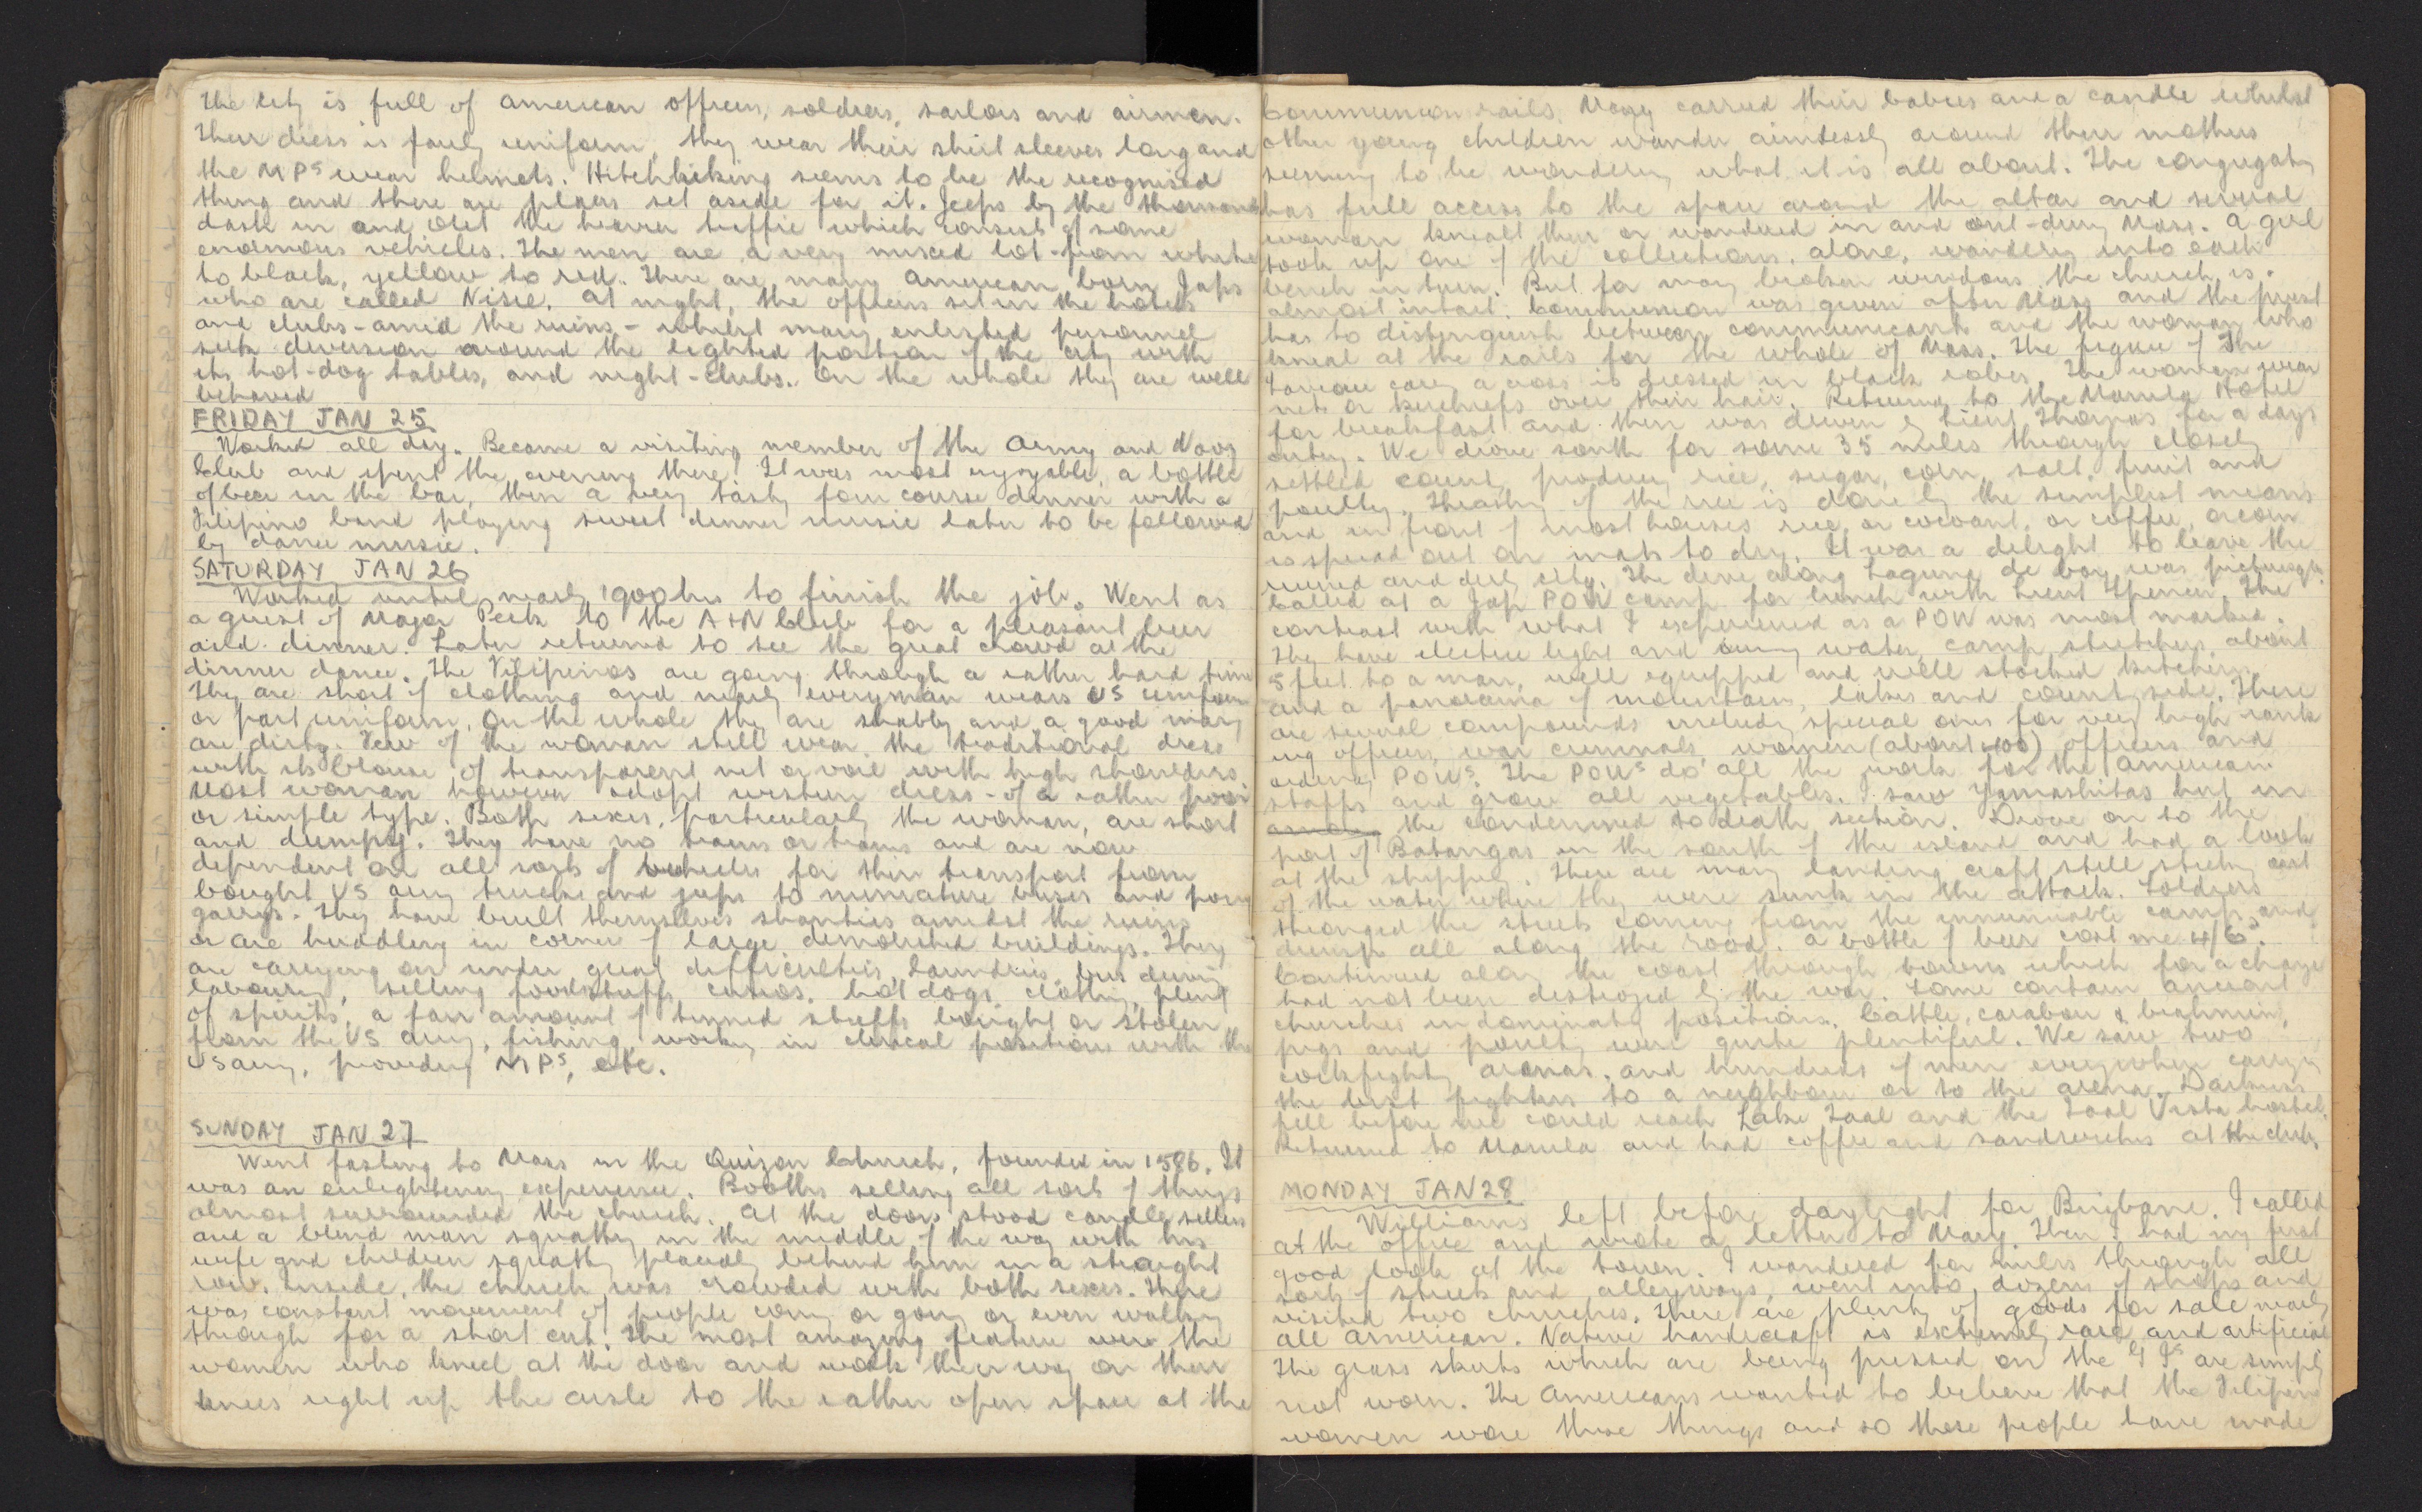 The city is full of American officers, soldiers, sailors and airmen.
Their dress is fairly uniform, they wear their shirt sleeves long and
the MPs wear helmets. Hitchhiking seems to be the recognised
thing and there are places set aside for it. Jeeps by the thousand
dash in and out the heavier traffic which consists of some
enormous vehicles. The men are a very mixed lot - from white
to black, yellow to red. There are many American born Japs
who are called Nisie. At night, the officers sit in the hotels
and clubs - amid the ruins - whilst many enlisted personnel
seek diversion around the lighted portion of the city with
its hot-dog tables, and night-clubs. On the whole they are well
behaved
FRIDAY JAN 25
Worked all day. Became a visiting member of the Army and Navy
Club and spent the evening there. It was most enjoyable, a bottle
of beer in the bar, then a very tasty four course dinner with a
Filipino band playing sweet dinner music later to be followed
by dance music.
SATURDAY JAN 26
Worked until nearly 1900 hrs to finish the job. Went as
a guest of Major Peek to the A+N Club for a pleasant beer
and dinner. Later returned to see the great crowd at the
dinner dance. The Filipinos are going through a rather hard time
They are short of clothing and nearly everyman wears US uniform
or part uniform. On the whole they are shabby and a good many
are dirty. Few of the woman still wear the traditional dress
with its blouse of transparent net or voile with high shoulders.
Most woman however adopt western dress - of a rather poor
or simple type. Both sexes, particularly the woman, are short
and dumpy. They have no trains or trams and are now
dependent on all sorts of vehicles for their transport from
bought US army trucks and jeeps to miniature buses and pony
garrys. They have built themselves shanties amidst the ruins
or are huddling in corner of large demolished buildings. They
are carrying on under great difficulties, laundries, bus driving
labouring, selling foodstuffs, curios, hot dogs, clothing, plenty
of spirits, a fair amount of tinned stuffs bought or stolen
from the US army, fishing, working in clerical positions with the
US army, providing MPs, etc.
SUNDAY JAN 27
Went fasting to Mass in the Quizon Church, founded in 1586. It
was an enlightening experience. Booths selling all sorts of things
almost surrounded the church. At the doors stood candle sellers
and a blind man squatting in the middle of the way with his
wife and children squatting placidly behind him in a straight
row. Inside, the church was crowded with both sexes. There
was constant movement of people coming or going or even walking
through for a short cut. The most amazing feature were the
women who kneel at the door and work their way on their
knees right up the aisle to the rather open space at the
Communion rails. Many carried their babies and a candle whilst
other young children wander aimlessly around their mothers
seeming to be wondering what it is all about. The congregation
has full access to the space around the altar and several
woman knealt there or wandered in and out during Mass. A girl
took up one of the collections, alone, wandering into each
bench in turn. But for many broken windows the church is
almost intact. Communion was given after Mass and the priest
has to distinguish between communicants and the woman who
kneal at the rails for the whole of Mass. The figure of the
Saviour carrying a cross is dressed in black robes. The women wear
nets or kerchiefs over their hair. Returned to the Manila Hotel
for breakfast and then was driven by Lieut Thomas for a days
outing. We drove south for some 35 miles through closely
settled country producing rice, sugar, corn, salt, fruit and
poultry. Threshing of the rice is done by the simplest means
and in front of most houses rice, or cocoant, or coffee, or corn
is spread out on mats to dry. It was a delight to leave the
ruined and dirty city. The drive along Laguna de bay was picturesque.
Called at a Jap POW camp for lunch with Lieut Spencer. The
contrast with what I experienced as a POW was most marked.
They have electric light and running water, camp stretchers, about
5 feet to a man, well equipped and well stocked kitchens,
and a panorama of mountains, lakes and countryside. There
are several compounds including special ones for very high rank
ing officers, war criminals, women (about 400), officers and
ordinary POWs. The POWs do all the work for the American
staffs and grow all vegetables. I saw Yamashitas hut in
the condemned to death section. Drove on to the
port of Batangas in the south of the island and had a look
at the shipping. There are many landing craft still sticking out
of the water where they were sunk in the attack. Soldiers
thronged the streets coming from the innumerable camps and
dumps all along the road. A bottle of beer cost me 4/6.
Continued along the coast through towns which for a change
had not been destroyed by the war. Some contain ancient
churches in dominating positions. Cattle, carabou & brahmin,
pigs and poultry were quite plentiful. We saw two
cockfighting arenas, and hundreds of men everywhere carrying
the best fighters to a neighbour or to the arena. Darkness
fell before we could reach Lake Taal and the Taal Vista hostel.
Returned to Manila and had coffee and sandwiches at the club.
MONDAY JAN 28
Williams left before daylight for Brisbane. I called
at the office and wrote a letter to Mary. Then I had my first
good look at the town. I wandered for miles through all
sorts of streets and alleyways, went into dozens of shops and
visited two churches. There are plenty of goods for sale nearly
all American. Native handicraft is extremely rare and artificial
The grass skirts which are being pressed on the GIs are simply
not worn. The Americans wanted to believe that the Filipino
women wore these things and so these people have made